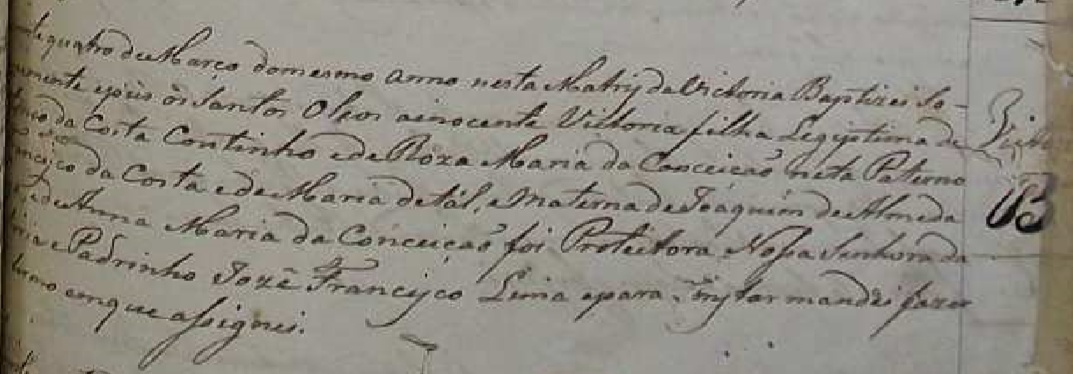 de quatro de Março do mesmo anno nesta Matriz da Victoria Baptizei So-
lemnemente e puis os Santos Oleos a inocente Victoria filha Legiptima de
da Costa Continho e de Roza Maria da Conceicaõ neta Paterno
Francisco da Costa e de Maria de tál, e Materna de Joáquim de Almeda
e de Anna Maria da Conceiçaõ foi Protectora Nossa Senhora da
Padrinho Jozé Francisco Lima e para constar mandei fazer
em que assignei.
B